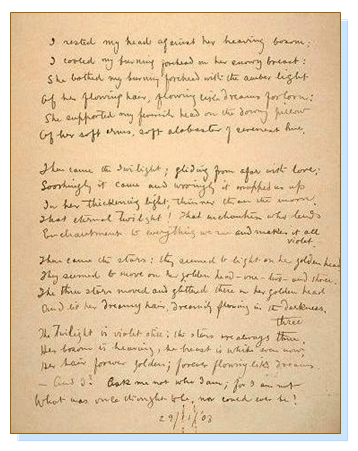 I rested my head against her heaving bosom;
I cooled my burning forehead on her snowy breast:
She bathed my burning forehead with the amber light
Of her flowing hair, flowing like dreams forlorn:
She supported my feverish head on the downy pillow
Of her soft arms, soft alabaster of hue,
Then came the twilight; gliding from afar with love;
Soothingly it came and wooingly it wrapped us up
In her thickening light, thinner than the moon.
That eternal twilight! That enchantress who lends
Enchantment to everything we see and makes it all
violet.
Then came the stars: they seemed to light on her golden head
They seemed to move on her golden head - one - two - and three.
The three stars moved and glittered there on her golden head
And lit her dreamy hair, dreamily flowing in the darkness.
three
The twilight is violet still; the stars are always three.
Her bosom is heaving, her breast is white even now;
Her hair forever golden; forever flowing like dreams
- And I? Ask me not who I am; for I am not
What was once thought to be, nor could ever be!
29/11/03